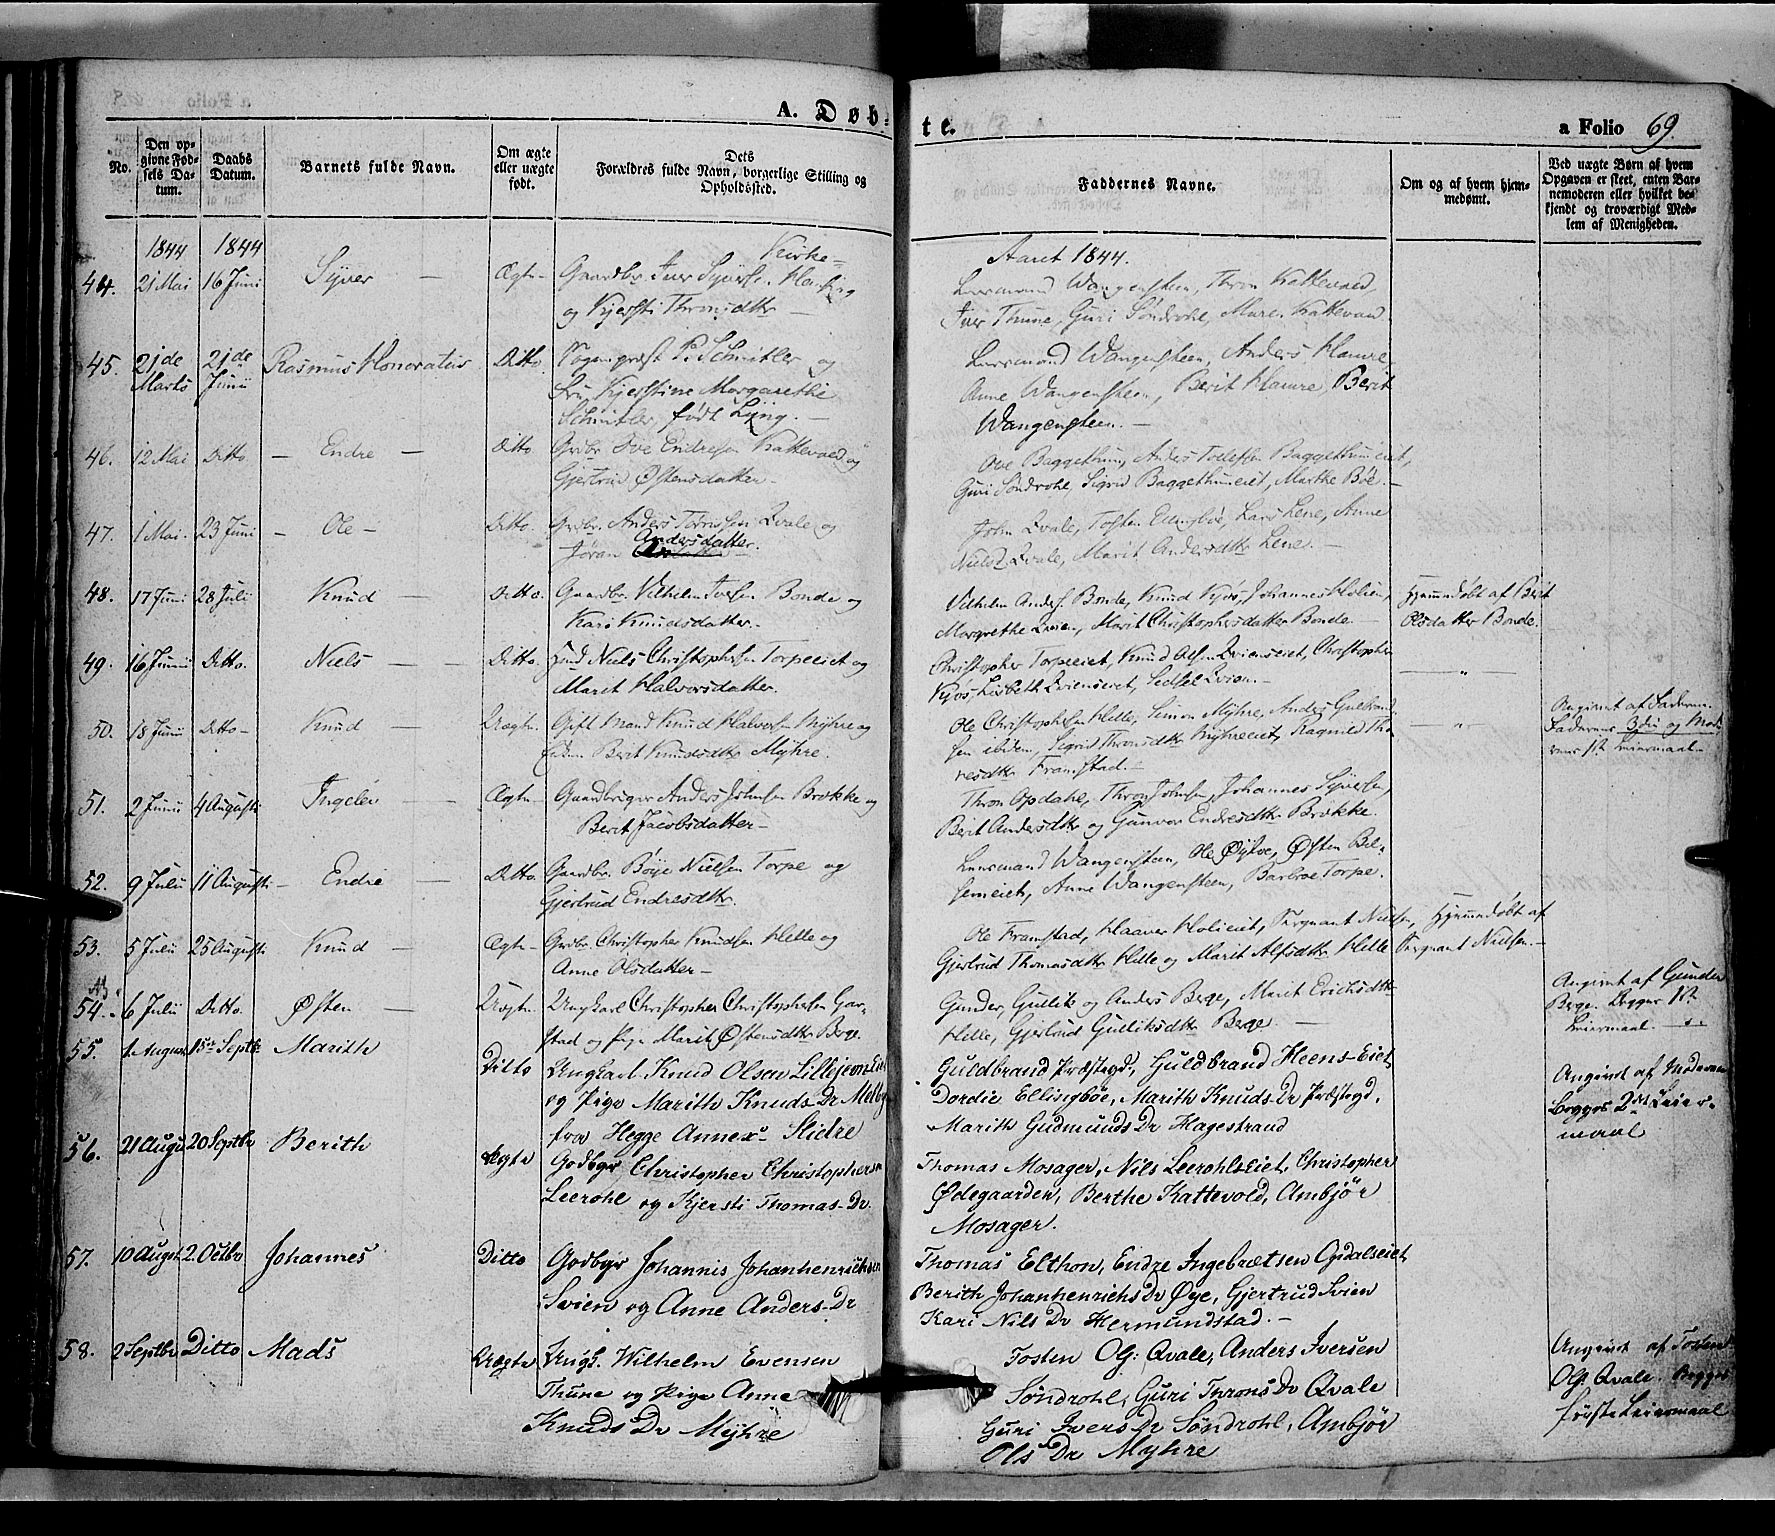 A. Døb-
te.
a Folio 69
No.
Den op-
givne Fød-
sels Da-
tum.
Daabs
Datum.
Barnets fulde Navn.
Om ægte
eller uægte
født.
Dets
Forældres fulde Navn, borgerlige Stilling og
Opholdssted.
Faddernes Navne.
Om og af hvem hjem-
medømt.
Ved uægte Børn af hvem
Opgaven er skeet, enten Bar-
nemoderen eller hvilket be-
kjendt og troværdigt Med-
lem af Menigheden.
1844 1844
Aaret 1844.
44. 21 Mai 16 Juni Syver — Ægte Gaardbr. Iver Syvers. Kirke-
og Kjersti Thronsdtr —
Leensmand Wangensteen, Thron Kattevold,
Iver Thune, Guri Søndrohl, Maren Kattevold.
45. 21de Marts 21de Junii Rasmus Honoratus Ditto Sogneprest P. Schnitler og
Fru Kjerstine Margarethe
Schnitler, født Lyng. —
Leensmand Wangensteen, Anders Hamre,
Anne Wangensteen, Berit Hamre, Berit
Wangensteen. —
46. 12 Mai Ditto — Endre — Ditto Grdbr. Ove Endresen Kattevold og
Gjertrud Østensdatter —
Ove Baggethun, Anders Baggethuneiet,
Guri Søndrohl, Sigrid Baggethuneiet, Marthe Bøe. —
47. 1 Mai. 23 Juni — Ole — Ditto. Grdbr. Anders Qvale og
Joran Andersdatter.
John Qvale, Tosten Ellingbøe, Lars Lene, Anne
Nielsd. Qvale, Marit Andersdtr Lene. —
48. 17 Juni 28 Juli Knud — Ditto. Gaardbr. Vilhelm Iversen Bonde og
Kari Knudsdatter. —
Vilhelm Anders. Bonde, Knud Kjøs, Johannes Holien,
Margrethe Qvien, Marit Christophersdatter Bonde
Hjemmedøbt af Berit
Olsdatter Bonde.
49. 16 Junii Ditto. Niels — — Ditto. Hmd Niels Christophersen Torpeeiet og
Marit Halvorsdatter.
Christopher Torpeeiet, Knud Olsen Qvienseiet, Christopher
Kjøs, Lisbeth Qvienseiet, Sidsel Qvien. —
50. 18 Junii Ditto — Knud — Uægte Gift Mand Knud Halvorsen Myhre og
Enken Berit Knudsdtr. Myhre.
Ole Christophersen Helle, Simon Myhre, Anders Gulbrand-
sen ibidem, Sigrid Thronsdtr Myhreeiet, Ragnild Tho-
resdtr Framstad. —
Angivet af Faderen.
Faderens 3die og Mod-
erens 1ste Leiermaal. —
51. 2 Junii 4 Augusti Ingelev — — Ægte Gaardbruger Anders Johnsen Brække og
Berit Jacobsdatter —
Thron Opdahl, Thron Johnsen, Johannes Syversen,
Berit Andersdtr og Gunvor Endresdtr Brække.
52. 9 Julii 11 Augusti — Endre — Ditto. Gaardbr. Bøye Nielsen Torpe og
Gjertrud Endresdtr.
Leensmand Wangensteen, Ole Øyloe, Østen Bel-
seneiet, Anne Wangensteen, Barbroe Torpe.
53. 5 Julii 25 Augusti Knud — Ægte — Grdbr. Christopher Knudsen Helle og
Anne Olsdatter —
Ole Framstad, Haaver Holieeiet, Sergeant Nielsen,
Gjertrud Thomasdtr Helle og Marit Alfsdtr Helle
Hjemmedøbt af
Sergeant Nielsen. —
54. 6 Julii Ditto. Østen — Uægte Ungkarl Christopher Christophersen Gar-
stad og Pige Marit Østensdtr Berge.
Gunder, Gullik og Anders Berge, Marit Erichsdtr
Helle, Gjertrud Gulliksdtr Berge. —
Angivet af Gunder
Berge. Begges 1ste
Leiermaal. —
55. 1 August 15de Septbr Marith Ditto Ungkarl Knud Olsen Lillejerneiet
og Pige Marith Knuds Dr Melby
fra Hegge Annex Slidre
Guldbrand Præstegd., Guldbrand Heens-Eiet,
Dordie Ellingbøe, Marith Knuds Dr Præstegd.
Marith Gudmunds Dr Hagestrand
Angivet af Moderen
Begges 2det Leier-
maal
56. 21 Augu 20 Septbr Berith Ægte Godbgr Christopher Christophersen
Leerohl og Kjersti Thomas-Dr.
Thomas Mosager, Nils Leerohlseiet, Christopher
Ødegaarden, Berthe Kattevold, Ambjør
Mosager.
57. 10 August 2. Octbr Johannes Ditto Godbgr Johannis Johanhenrichsen
Svien og Anne Anders-Dr
Thomas Elthon, Endre Ingebrætsen Opdalseiet
Berith Johanhenrichs Dr Øye, Gjertrud Svien
Kari Nils Dr Hermundstad. —
58. 2 Septbr Ditto Mads Uægte Ungk. Wilhelm Evensen
Thune og Pige Anne
Knuds Dr Myhre
Tosten Ols: Qvale, Anders Iversen
Søndrohl, Guri Throns Dr Qvale
Guri Ivers Dr Søndrohl, Ambjør
Ols Dr Myhre
Angivet af Tosten
Ols Qvale. Begges
første Leiermaal